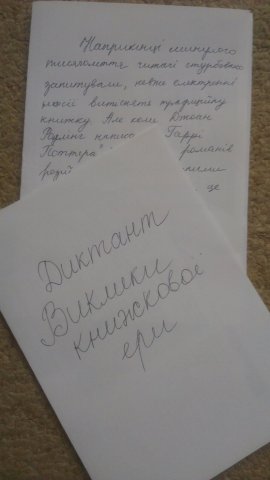 Наприкінці минулого
тисячоліття читачі стурбовано
запитували, невже електронні
носії витіснять традиційну
книжку. Але коли Джоан
Роулінг написа
Поттера романів
розій
це
Диктант
Виклики
книжкової
ери